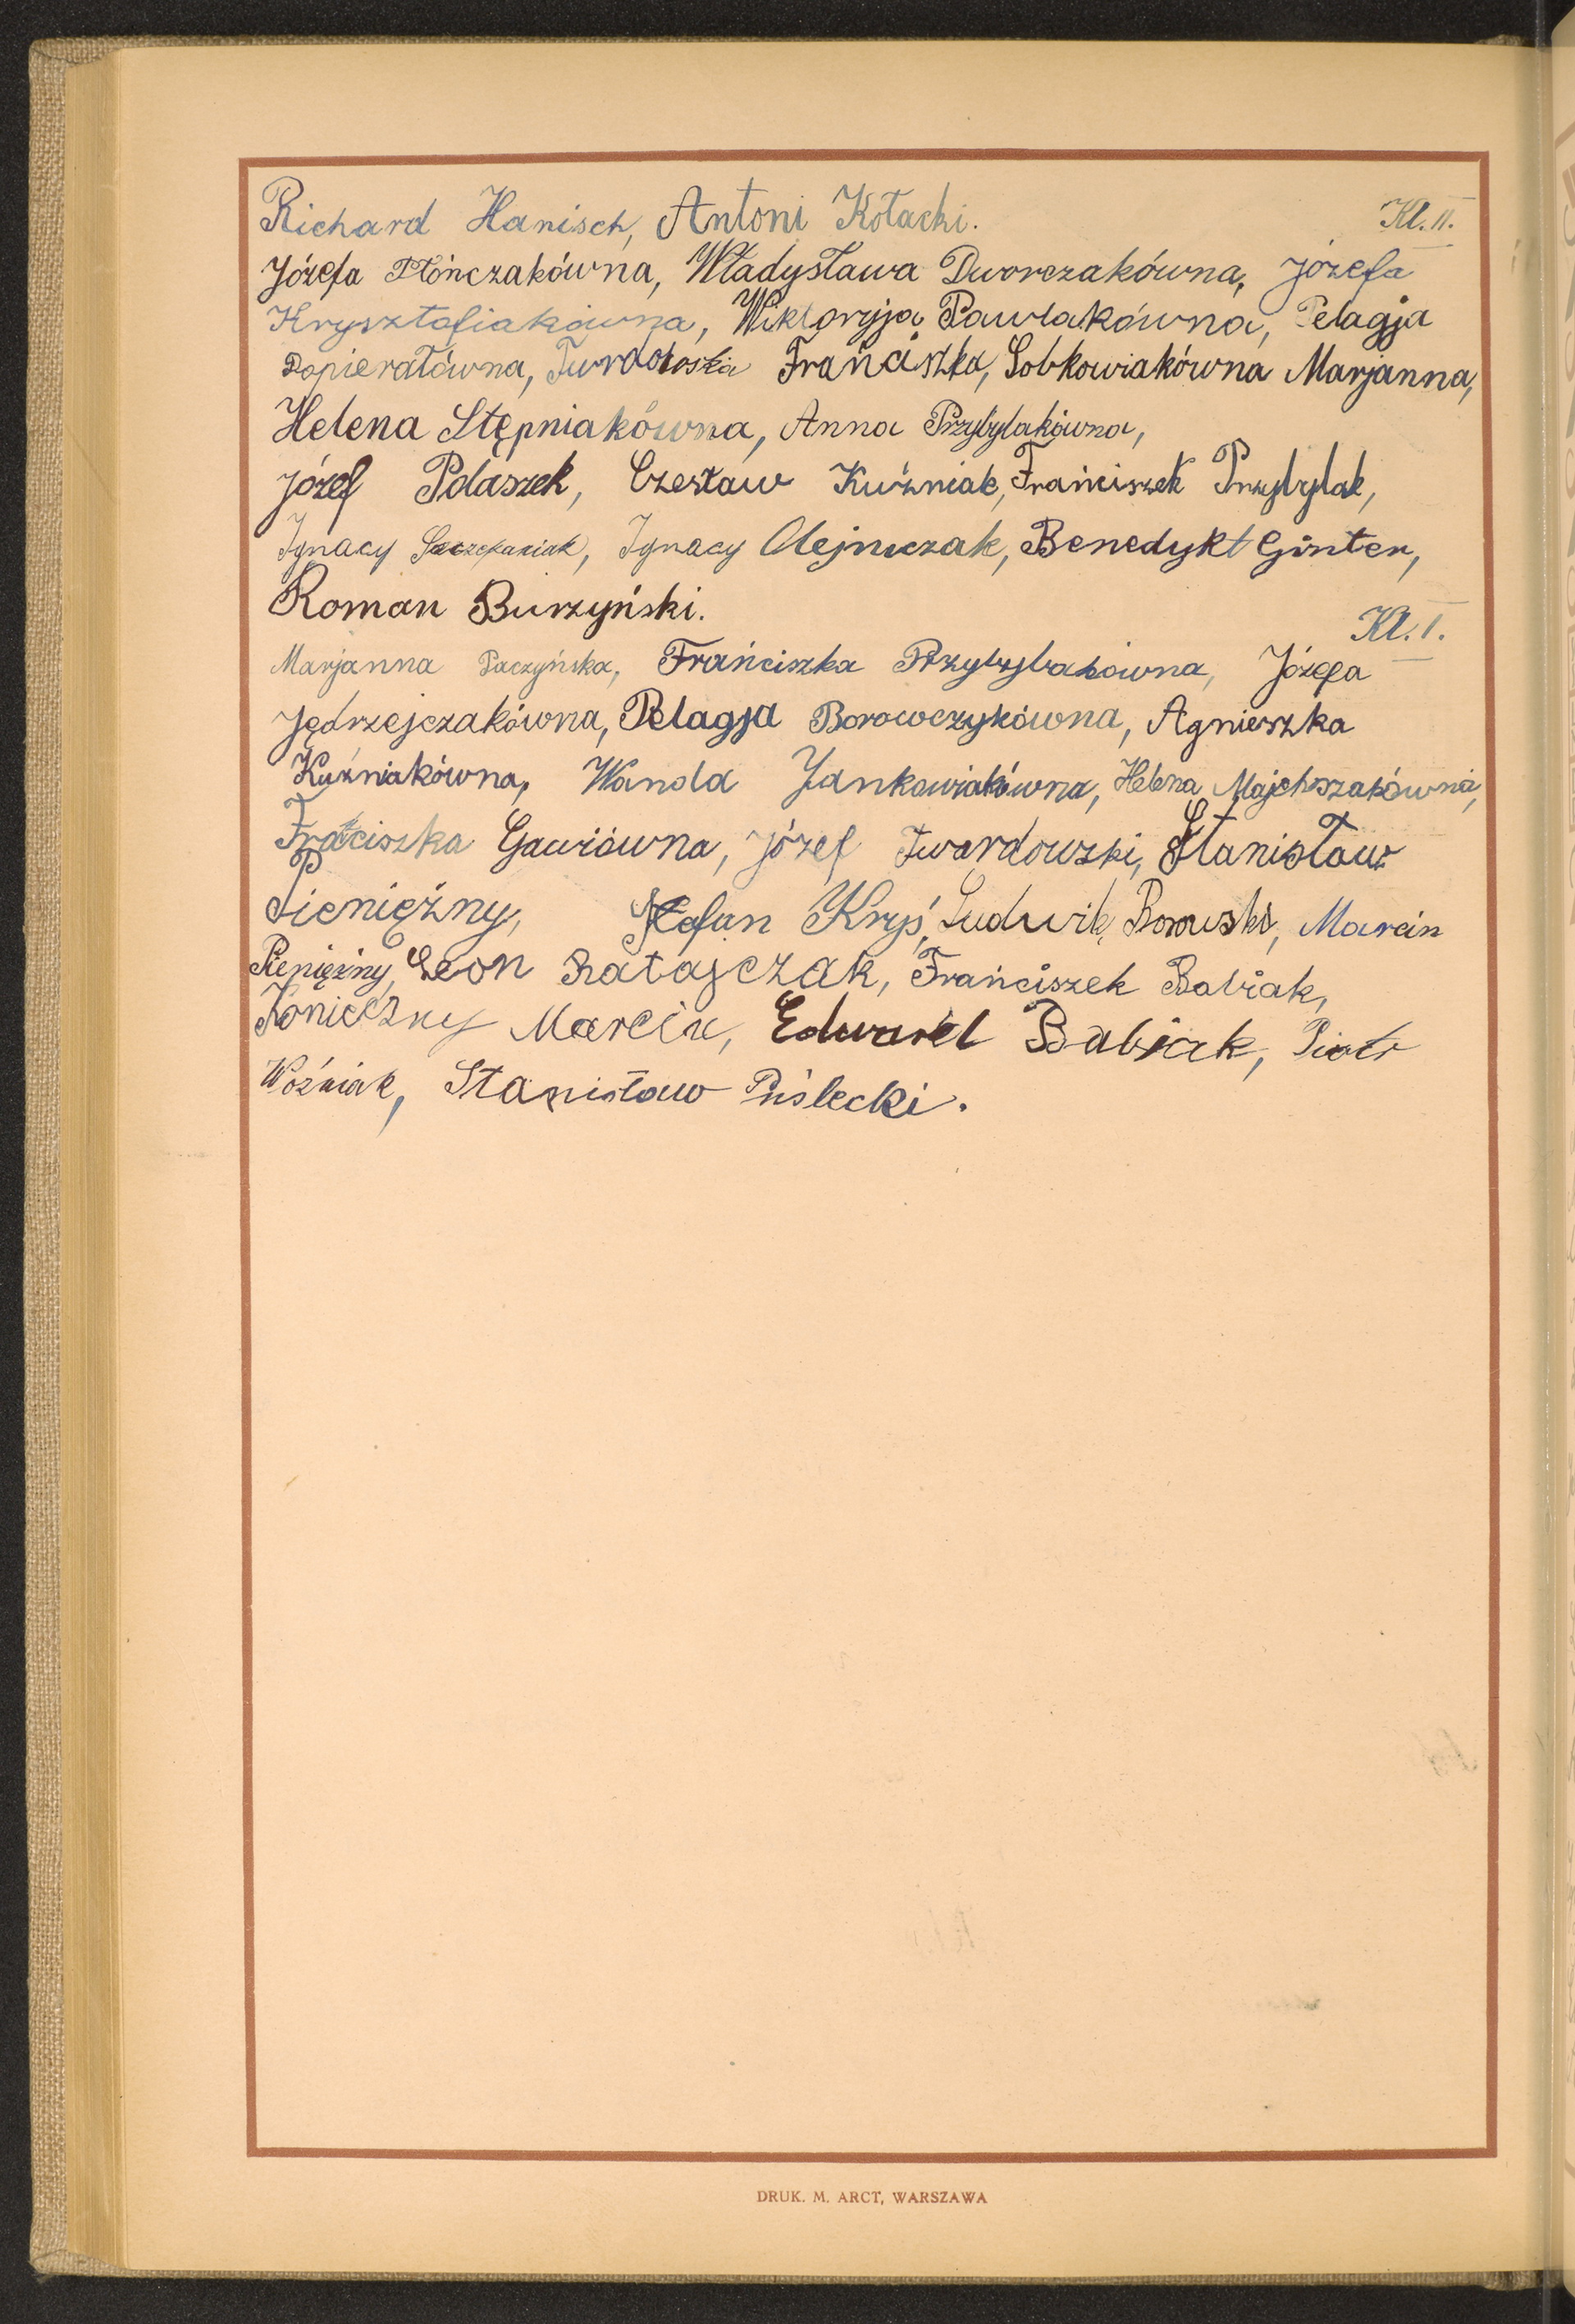 Richard Hanisch, Antoni Kołacki. Kl. II.
Józefa Płończakówna, Władysława Dworczakówna, Józefa
Krysztofiakówna, Wiktoryja Pawlakówna, Pelagja
Popierałówna, Twardowska Frańciszka, Sobkowiakówna Marjanna,
Helena Stępniakówna, Anna Przybylakówna,
Józef Polaszek, Czesław Kuźniak, Frańciszek Przybylak,
Ignacy Szczepaniak, Ignacy Olejniczak, Benedykt Ginter,
Roman Burzyński.
Kl. I.
Marjanna Paczyńska, Frańciszka Przybylakówna, Józefa
Jędrzejczakówna, Pelagja Borowczykówna, Agnieszka
Kuźniakówna, Wanda Jankowiakówna, Helena Majchszakówna,
Fraciszka Gawiówna, Józef Twardowski, Stanisław
Pieniężny, Stefan Kryś, Ludwik Borowski, Marcin
Pieniężny, Leon Ratajczak, Frańciszek Babiak,
Konieczny Marcin, Edward Babiak, Piotr
Woźniak, Stanisław Puślecki.
DRUK. M. ARCT, WARSZAWA